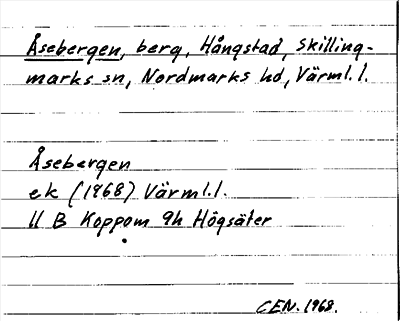 Åsebergen, berg, Hångstad, Skilling-
marks sn, Nordmarks hd, Värml. l.
Åsebergen
ek (1968) Värml. l.
11 B Koppom 9h Högsäter
CEN. 1968.